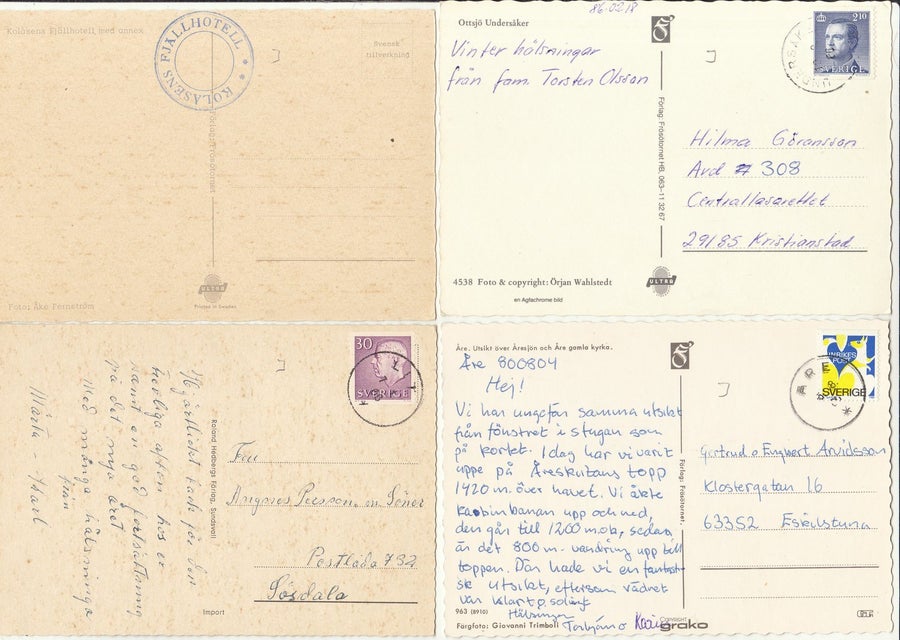 Kolåsens Fjällhotell med annex.
KOLÅSENS FJÄLLHOTELL
Svensk
tillverkning
ULTRA
Printed in Sweden
Foto: Åke Fernström
86-02-18
Ottsjö Undersåker
Vinter hälsningar
från fam. Torsten Olsson
210
SVERIGE
Förlag: Frösötornet HB. 063-11 32 67
Hilma Göransson
Avd # 308
Centrallasarettet
29185 Kristianstad
4538 Foto & copyright: Örjan Wahlstedt
en Agfachrome bild
ULTRA
Hjärtligt tack för den
trevliga afton hos er
samt en god fortsättning
på det nya året
med många hälsningar
från
Märta - Karl
30
SVERIGE
LIT
Roland Hedbergs Förlag, Sundsvall
Fru
Postlåda 792
Sösdala
Import
Åre. Utsikt över Åresjön och Åre gamla kyrka.
Åre 800804
Hej!
Vi har ungefär samma utsikt
från fönstret i stugan som
på kortet. Idag har vi varit
uppe på Åreskutans topp
1420 m. över havet. Vi åkte
kabinbanan upp och ned,
den går till 1200 m.ö.h, sedan
är det 800 m. vandring upp till
toppen. Där hade vi en fantasti-
sk utsikt, eftersom vädret
var klart o. soligt
Hälsningar
Torbjörn o
963 (8910)
Färgfoto: Giovanni Trimboli
Förlag: Frösötornet.
Copyright
grako
INRIKES
POST
SVERIGE
ÅRE
Gertrud o Engwert Arvidsson
Klostergatan 16
63352 Eskilstuna